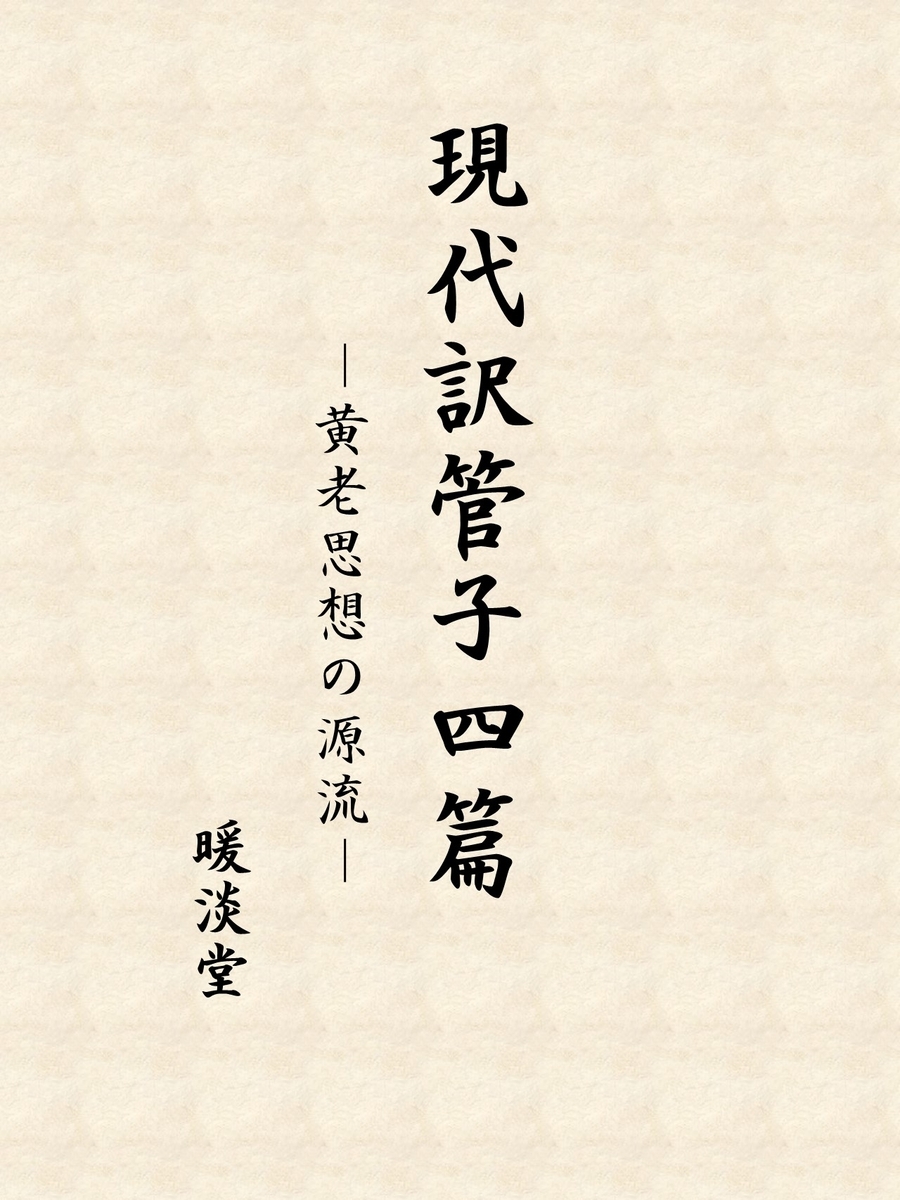 現代訳管子 四篇
―黄老思想の源流―
暖淡堂